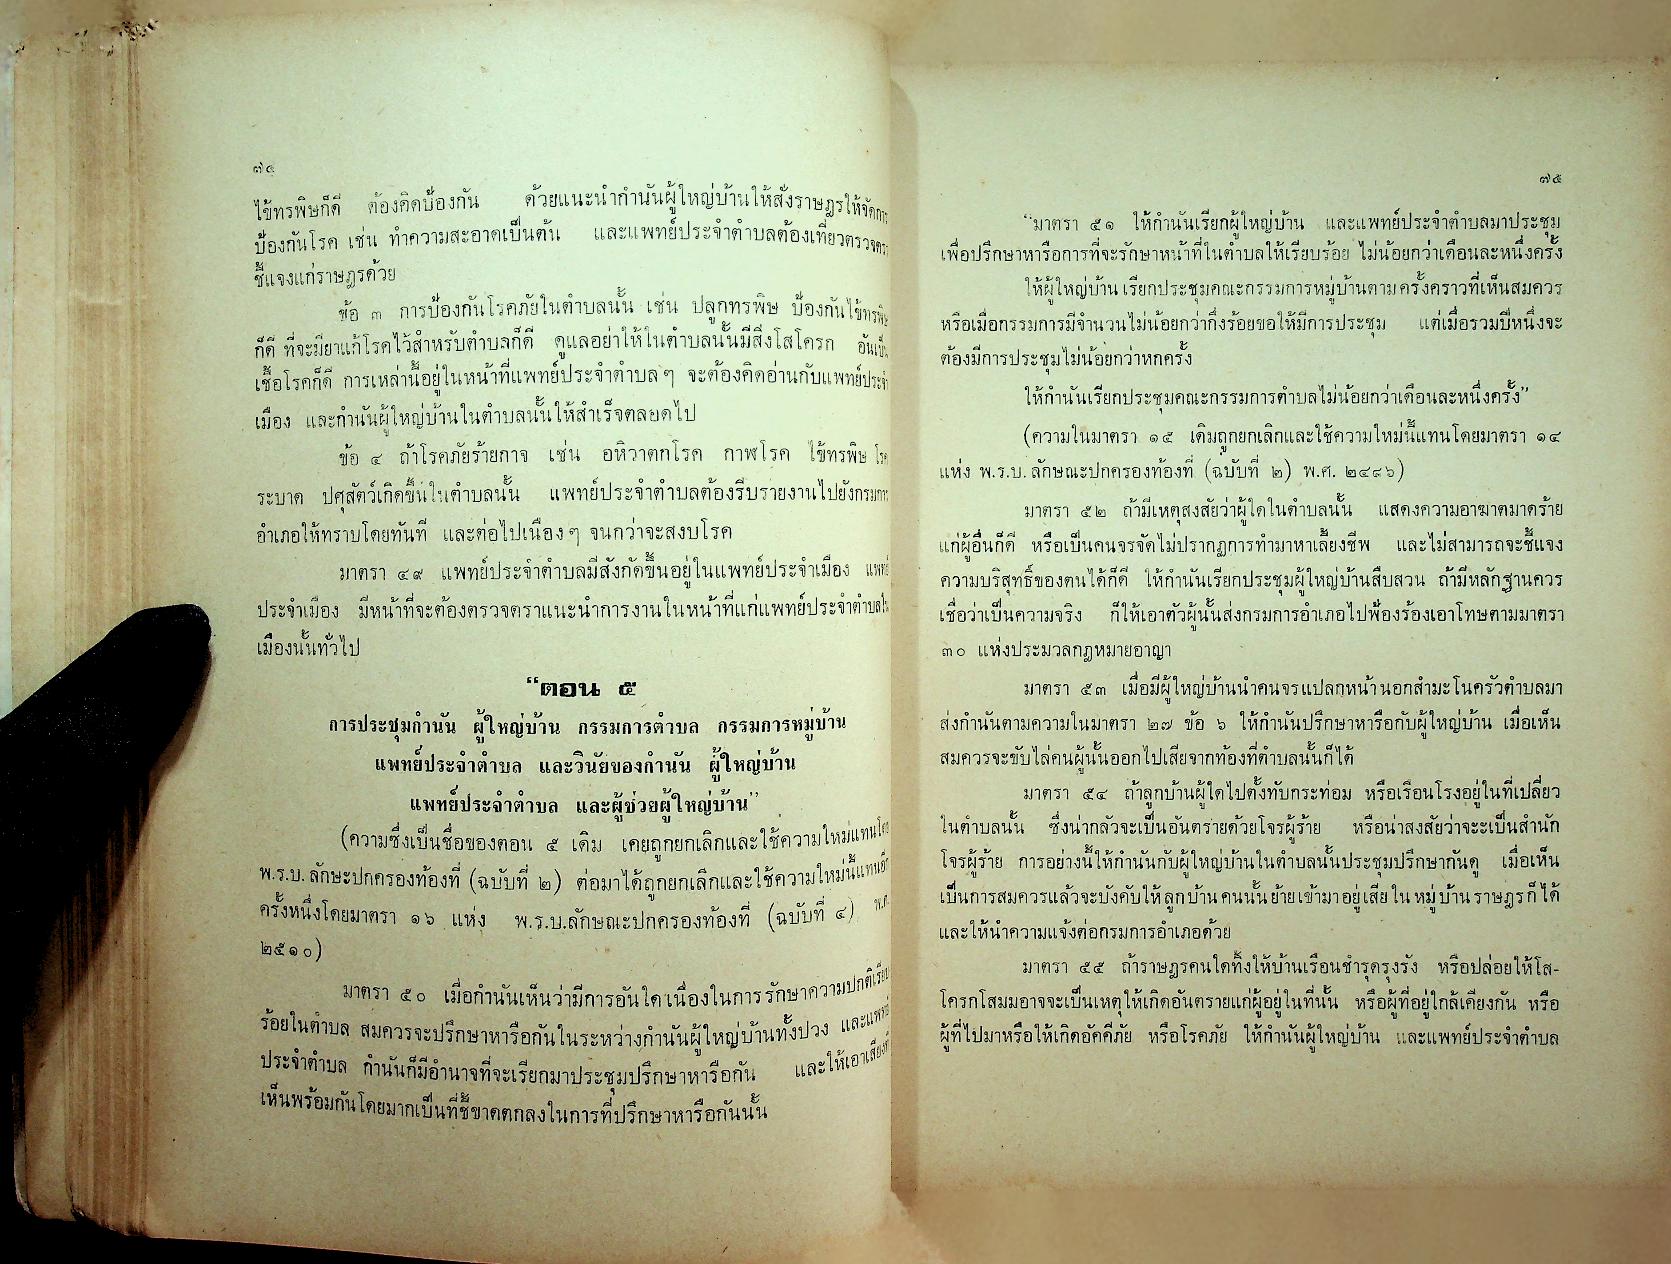 ๗๔
ไข้ทรพิษก็ดี ต้องคิดป้องกัน ด้วยแนะนำกำนันผู้ใหญ่บ้านให้สั่งราษฎรให้จัดการ
ป้องกันโรค เช่น ทำความสะอาดเป็นต้น และแพทย์ประจำตำบลต้องเที่ยวตรวจตรา
ชี้แจงแก่ราษฎรด้วย
ข้อ ๓ การป้องกันโรคภัยในตำบลนั้น เช่น ปลูกทรพิษ ป้องกันไข้ทรพิษ
ก็ดี ที่จะมียาแก้โรคไว้สำหรับตำบลก็ดี ดูแลอย่าให้ในตำบลนั้นมีสิ่งโสโครก อันเป็น
เชื้อโรคก็ดี การเหล่านี้อยู่ในหน้าที่แพทย์ประจำตำบลๆ จะต้องคิดอ่านกับแพทย์ประจำ
เมือง และกำนันผู้ใหญ่บ้านในตำบลนั้นให้สำเร็จตลอดไป
ข้อ ๔ ถ้าโรคภัยร้ายกาจ เช่น อหิวาตกโรค กาฬโรค ไข้ทรพิษ โรค
ระบาด ปศุสัตว์เกิดขึ้นในตำบลนั้น แพทย์ประจำตำบลต้องรีบรายงานไปยังกรมการ
อำเภอให้ทราบโดยทันที และต่อไปเนืองๆ จนกว่าจะสงบโรค
มาตรา ๔๙ แพทย์ประจำตำบลมีสังกัดขึ้นอยู่ในแพทย์ประจำเมือง แพทย์
ประจำเมือง มีหน้าที่จะต้องตรวจตราแนะนำการงานในหน้าที่แก่แพทย์ประจำตำบลใน
เมืองนั้นทั่วไป
“ตอน ๕
การประชุมกำนัน ผู้ใหญ่บ้าน กรรมการตำบล กรรมการหมู่บ้าน
แพทย์ประจำตำบล และวินัยของกำนัน ผู้ใหญ่บ้าน
แพทย์ประจำตำบล และผู้ช่วยผู้ใหญ่บ้าน”
(ความซึ่งเป็นชื่อของตอน ๕ เดิม เคยถูกยกเลิกและใช้ความใหม่แทนโดย
พ.ร.บ. ลักษะปกครองท้องที่ (ฉบับที่ ๒) ต่อมาได้ถูกยกเลิกและใช้ความใหม่นี้แทนอีก
ครั้งหนึ่งโดยมาตรา ๑๖ แห่ง พ.ร.บ.ลักษณะปกครองท้องที่ (ฉบับที่ ๔) พ.ศ.
๒๕๑๐)
มาตรา ๕๐ เมื่อกำนันเห็นว่ามีการอันใดเนื่องในการรักษาความปกติเรียบ
ร้อยในตำบล สมควรจะปรึกษาหารือกันในระหว่างกำนันผู้ใหญ่บ้านทั้งปวง และแพทย์
ประจำตำบล กำนันก็มีอำนาจที่จะเรียกมาประชุมปรึกษาหารือกัน และให้เอาเสียงที่
เห็นพร้อมกันโดยมากเป็นที่ชี้ขาดตกลงในการที่ปรึกษาหารือกันนั้น
๗๕
“มาตรา ๕๑ ให้กำนันเรียกผู้ใหญ่บ้าน และแพทย์ประจำตำบลมาประชุม
เพื่อปรึกษาหารือการที่จะรักษาหน้าที่ในตำบลให้เรียบร้อย ไม่น้อยกว่าเดือนละหนึ่งครั้ง
ให้ผู้ใหญ่บ้าน เรียกประชุมคณะกรรมการหมู่บ้านตามครั้งคราวที่เห็นสมควร
หรือเมื่อกรรมการมีจำนวนไม่น้อยกว่ากึ่งร้อยขอให้มีการประชุม แต่เมื่อรวมปีหนึ่งจะ
ต้องมีการประชุมไม่น้อยกว่าหกครั้ง
ให้กำนันเรียกประชุมคณะกรรมการตำบลไม่น้อยกว่าเดือนละหนึ่งครั้ง”
(ความในมาตรา ๑๕ เดิมถูกยกเลิกและใช้ความใหม่นี้แทนโดยมาตรา ๑๔
แห่ง พ.ร.บ. ลักษณะปกครองท้องที่ (ฉบับที่ ๒) พ.ศ. ๒๔๘๖)
มาตรา ๕๒ ถ้ามีเหตุสงสัยว่าผู้ใดในตำบลนั้น แสดงความอาฆาตมาดร้าย
แก่ผู้อื่นก็ดี หรือเป็นคนจรจัดไม่ปรากฏการทำมาหาเลี้ยงชีพ และไม่สามารถจะชี้แจง
ความบริสุทธิ์ของตนได้ก็ดี ให้กำนันเรียกประชุมผู้ใหญ่บ้านสืบสวน ถ้ามีหลักฐานควร
เชื่อว่าเป็นความจริง ก็ให้เอาตัวผู้นั้นส่งกรมการอำเภอไปฟ้องร้องเอาโทษตามมาตรา
๓๐ แห่งประมวลกฎหมายอาญา
มาตรา ๕๓ เมื่อมีผู้ใหญ่บ้านนำคนจรแปลกหน้านอกสำมะโนครัวตำบลมา
ส่งกำนันตามความในมาตรา ๒๗ ข้อ ๖ ให้กำนันปรึกษาหารือกับผู้ใหญ่บ้าน เมื่อเห็น
สมควรจะขับไล่คนผู้นั้นออกไปเสียจากท้องที่ตำบลนั้นก็ได้
มาตรา ๕๔ ถ้าลูกบ้านผู้ใดไปตั้งทับกระท่อม หรือเรือนโรงอยู่ในที่เปลี่ยว
ในตำบลนั้น ซึ่งน่ากลัวจะเป็นอันตรายด้วยโจรผู้ร้าย หรือน่าสงสัยว่าจะเป็นสำนัก
โจรผู้ร้าย การอย่างนี้ให้กำนันกับผู้ใหญ่บ้านในตำบลนั้นประชุมปรึกษากันดู เมื่อเห็น
เป็นการสมควรแล้วจะบังคับให้ลูกบ้านคนนั้นย้ายเข้ามาอยู่เสียในหมู่บ้านราษฎรก็ได้
และให้นำความแจ้งต่อกรมการอำเภอด้วย
มาตรา ๕๕ ถ้าราษฎรคนใดทิ้งให้บ้านเรือนชำรุดรุงรัง หรือปล่อยให้โส-
โครกโสมมอาจจะเป็นเหตุให้เกิดอันตรายแก่ผู้อยู่ในที่นั้น หรือผู้ที่อยู่ใกล้เคียงกัน หรือ
ผู้ที่ไปมาหรือให้เกิดอัคคีภัย หรือโรคภัย ให้กำนันผู้ใหญ่บ้าน และแพทย์ประจำตำบล